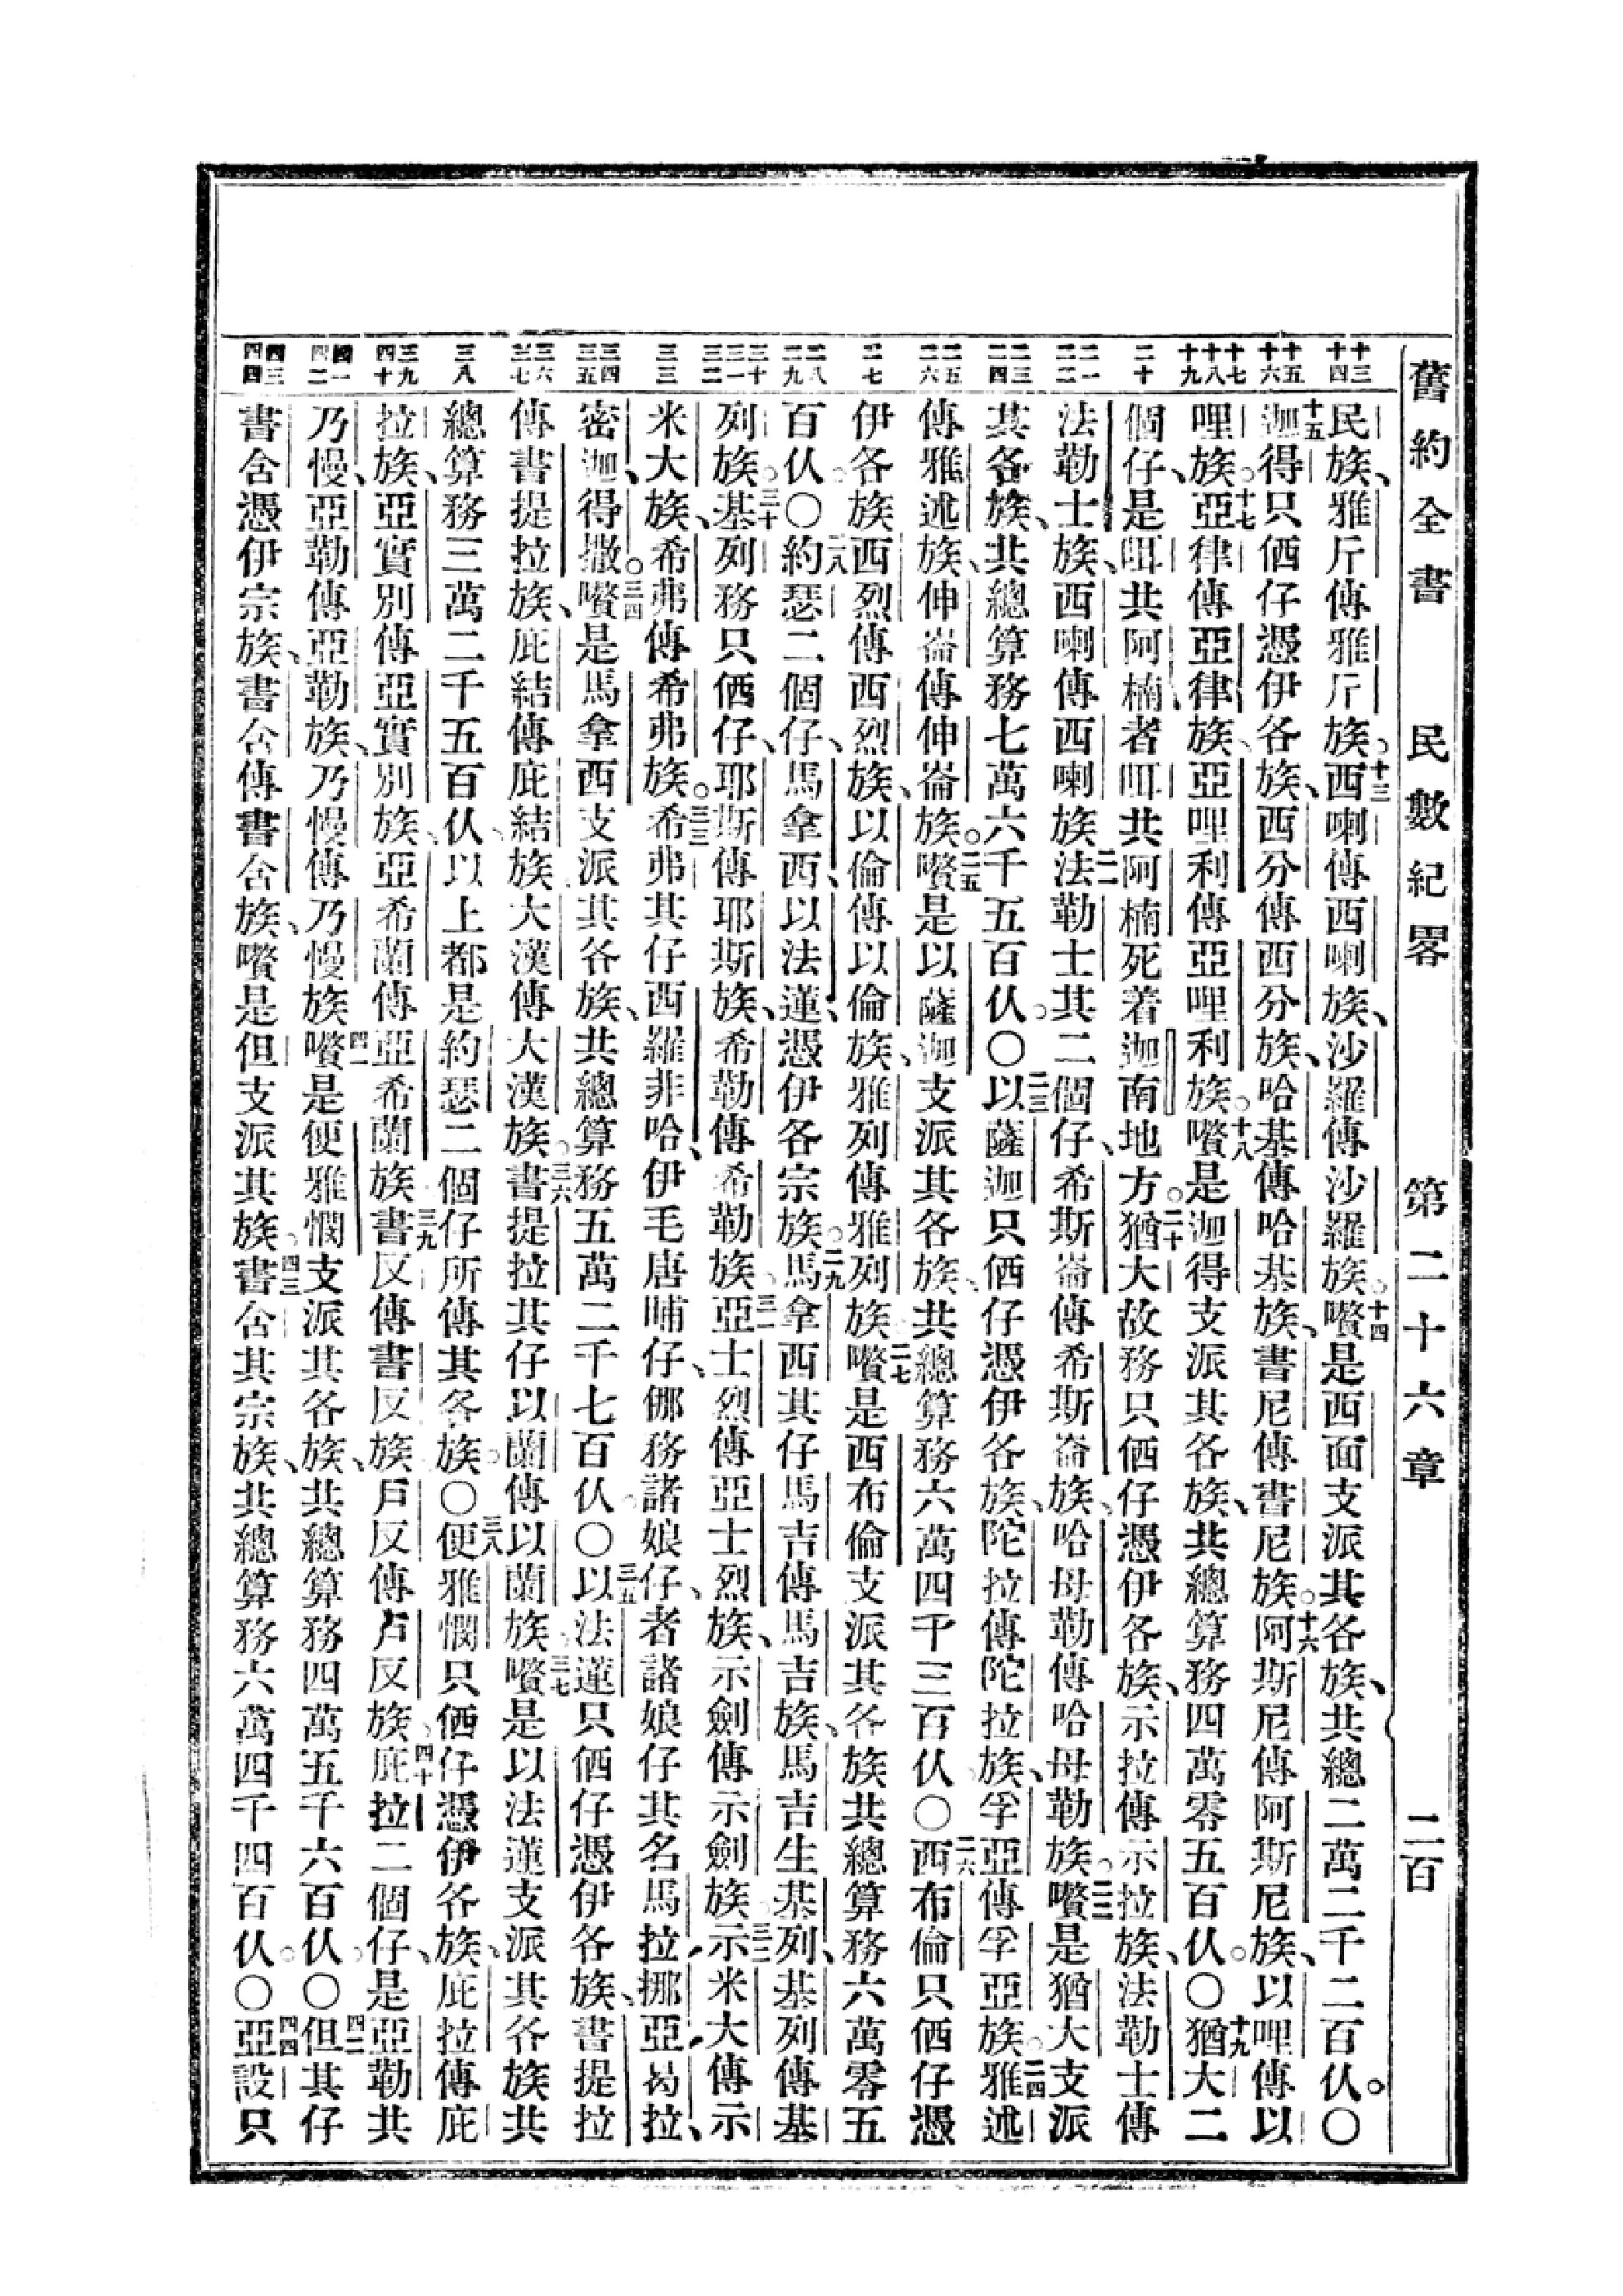 舊約全書　民數紀畧　第二十六章　二百
十三 十四 十五 十六 十七 十八 十九 二十 二一 二二 二三 二四 二五 二六 二七 二八 二九 三十 三一 三二 三三 三四 三五 三六 三七 三八 三九 四十 四一 四二 四三 四四
民族、雅斤傳雅斤族。十三西喇傳西喇族、沙羅傳沙羅族。十四嚽是西面支派其各族、共總二萬二千二百仈。〇
十五迦得只儕仔憑伊各族、西分傳西分族、哈基傳哈基族、書尼傳書尼族。十六阿斯尼傳阿斯尼族、以哩傳以
哩族。十七亞律傳亞律族、亞哩利傳亞哩利族。十八嚽是迦得支派其各族、共總算務四萬零五百仈。〇十九猶大二
個仔、是咡共阿楠者咡共阿楠死着迦南地方。二十猶大故務只儕仔憑伊各族、示拉傳示拉族、法勒士傳
法勒士族、西喇傳西喇族。二一法勒士其二個仔、希斯崙傳希斯崙族、哈母勒傳哈母勒族。二二嚽是猶大支派
其各族、共總算務七萬六千五百仈。〇二三以薩迦只儕仔憑伊各族、陀拉傳陀拉族、孚亞傳孚亞族。二四雅述
傳雅述族、伸崙傳伸崙族。二五嚽是以薩迦支派其各族、共總算務六萬四千三百仈。〇二六西布倫只儕仔憑
伊各族西烈傳西烈族、以倫傳以倫族、雅列傳雅列族。二七嚽是西布倫支派其各族共總算務六萬零五
百仈。〇二八約瑟二個仔、馬拿西、以法蓮、憑伊各宗族。二九馬拿西其仔馬吉傳馬吉族、馬吉生基列、基列傳基
列族。三十基列務只儕仔、耶斯傳耶斯族、希勒傳希勒族。三一亞士烈傳亞士烈族、示劍傳示劍族。三二示米大傳示
米大族、希弗傳希弗族。三三希弗其仔西羅非哈、伊毛唐晡仔、㑚務諸娘仔、者諸娘仔其名馬拉、挪亞、曷拉、
密迦、得撒。三四嚽是馬拿西支派其各族、共總算務五萬二千七百仈。〇三五以法蓮只儕仔憑伊各族、書提拉
傳書提拉族、庇結傳庇結族大漢傳大漢族。三六書提拉其仔以蘭傳以蘭族。三七嚽是以法蓮支派其各族共
總算務三萬二千五百仈、以上都是約瑟二個仔所傳其各族。〇三八便雅憫只儕仔憑伊各族、庇拉傳庇
拉族、亞實別傳亞實別族、亞希蘭傳亞希蘭族。三九書反傳書反族、戶反傳戶反族。四十庇拉二個仔、是亞勒共
乃慢、亞勒傳亞勒族、乃慢傳乃慢族。四一嚽是便雅憫支派其各族、共總算務四萬五千六百仈。〇四二但其仔
書含憑伊宗族、書含傳書含族、嚽是但支派其族。四三書含其宗族、共總算務六萬四千四百仈。〇四四亞設只